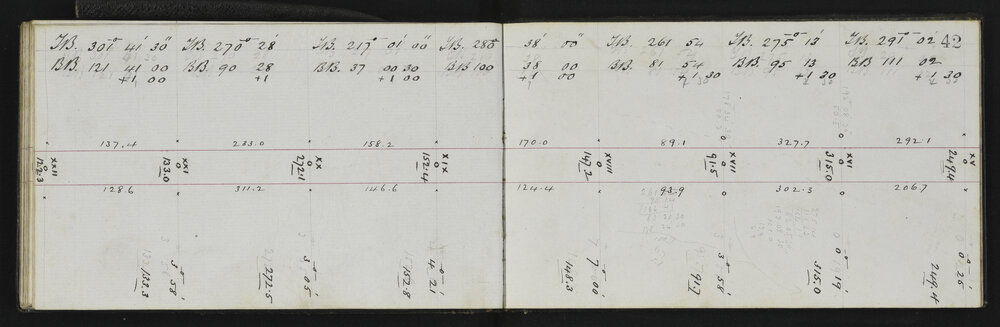 TB. 301° 41' 30" TB. 270° 28' TB. 217° 01' 00" TB. 280° 38' 00" TB. 261 54 TB. 275° 13' TB. 291° 02 42
BB. 121 41 00 BB. 90 28 BB. 37 00 30 BB 100 38 00 BB. 81 54 BB. 95 13 BB 111 02
+1 00 +1 +1 00 +1 00 +1 30 +1 30 +1 30
137.4 233.0 158.2 170.0 89.1 327.7 292.1
XXII 0 122.3
XXI 0 133.0
XX 0 272.1
XIX 0 152.4
XVIII 0 147.2
XVII 0 91.5
XVI 0 315.0
XV 0 249.4
128.6 311.2 146.6 124.4 93.9 302.3 206.7
3° 58'
133.3
3° 05'
272.5
4° 21'
152.8
7° 00'
148.3
3° 58'
91.7
0° 19'
315.0
0° 25'
249.4